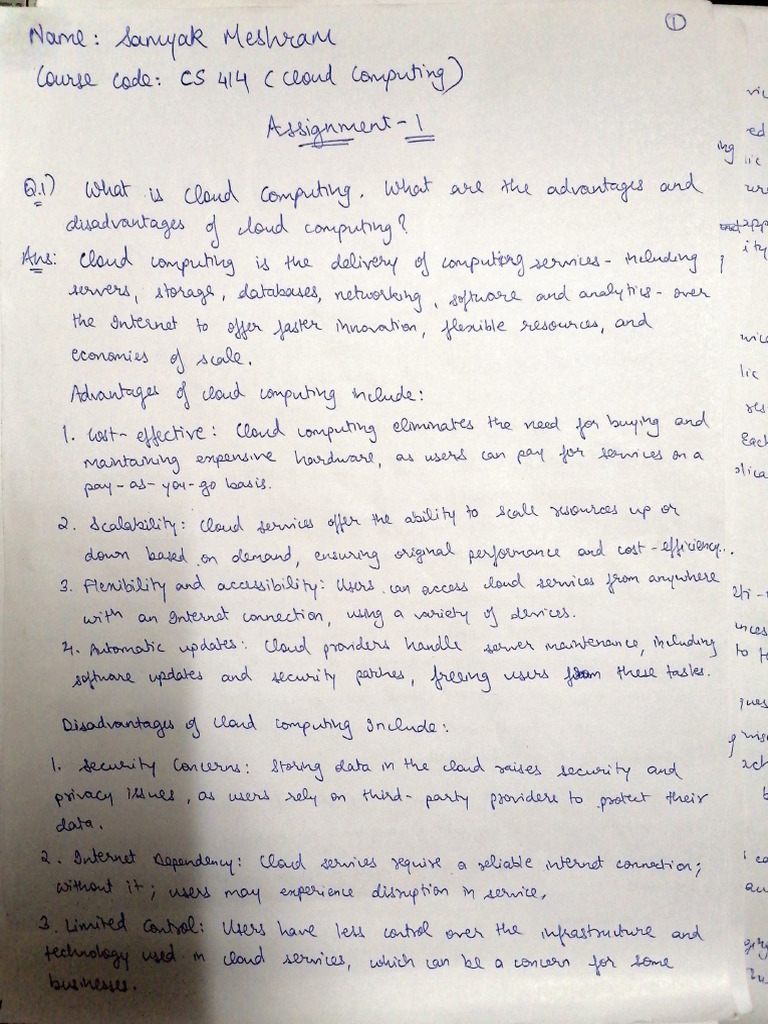 ①
Name: Samyak Meshram
Course code: CS 414 (Cloud Computing)
Assignment-1
Q.1) What is Cloud Computing. What are the advantages and
disadvantages of cloud computing?
Ans: Cloud computing is the delivery of computing services - including
servers, storage, databases, networking, software and analytics - over
the Internet to offer faster innovation, flexible resources, and
economies of scale.
Advantages of cloud computing include:
1. Cost-effective: Cloud computing eliminates the need for buying and
maintaining expensive hardware, as users can pay for services on a
pay-as-you-go basis.
2. Scalability: Cloud services offer the ability to scale resources up or
down based on demand, ensuring original performance and cost-efficiency..
3. Flexibility and accessibility: Users can access cloud services from anywhere
with an Internet connection, using a variety of devices.
4. Automatic updates: Cloud providers handle server maintenance, including
software updates and security patches, freeing users from these tasks.
Disadvantages of Cloud computing Include:
1. Security Concerns: Storing data in the cloud raises security and
privacy issues, as users rely on third-party providers to protect their
data.
2. Internet Dependency: Cloud services require a reliable internet connection;
without it; users may experience disruption in service,
3. Limited Control: Users have less control over the infrastructure and
technology used in cloud services, which can be a concern for some
businesses.